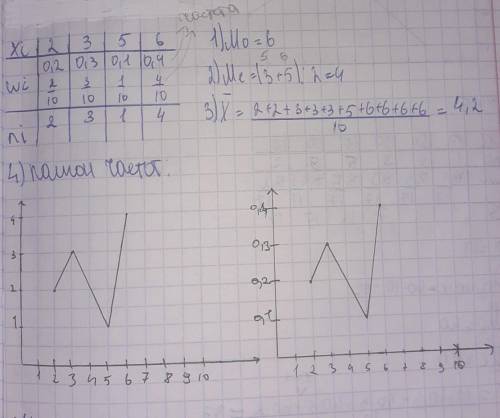 частота
xi 2 3 5 6
wi 0,2 0,3 0,1 0,4
2/10 3/10 1/10 4/10
ni 2 3 1 4
1) Mo = 6
5 6
2) Me = (3+5) : 2 = 4
3) x̄ = 2+2+3+3+3+5+6+6+6+6 / 10 = 4,2
4) част.
4
3
2
1
1 2 3 4 5 6 7 8 9 10
0,4
0,3
0,2
0,1
1 2 3 4 5 6 7 8 9 10